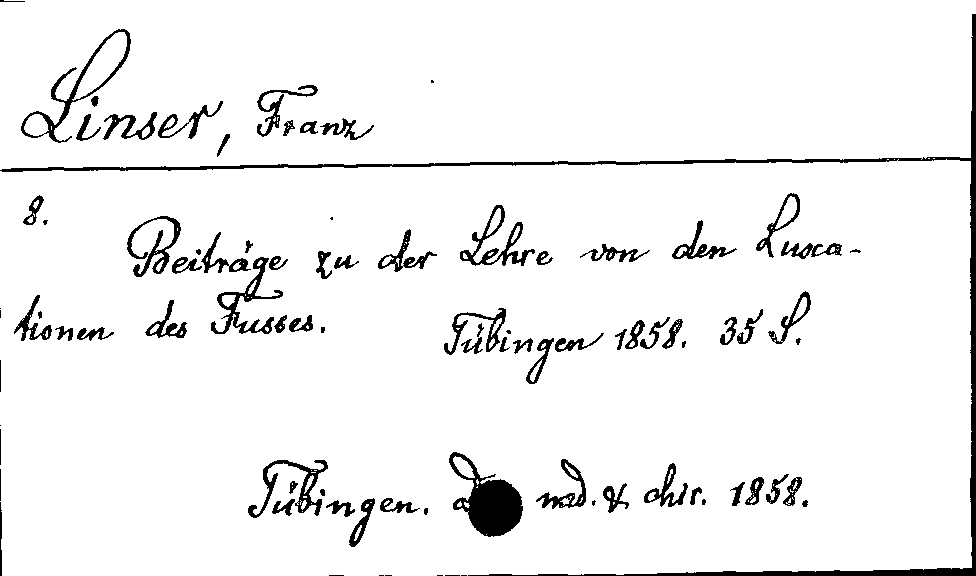 Linser, Franz
8.
Beiträge zu der Lehre von den Luxa-
tionen des Fusses.
Tübingen 1858. 35 S.
Tübingen. med. & chir. 1858.